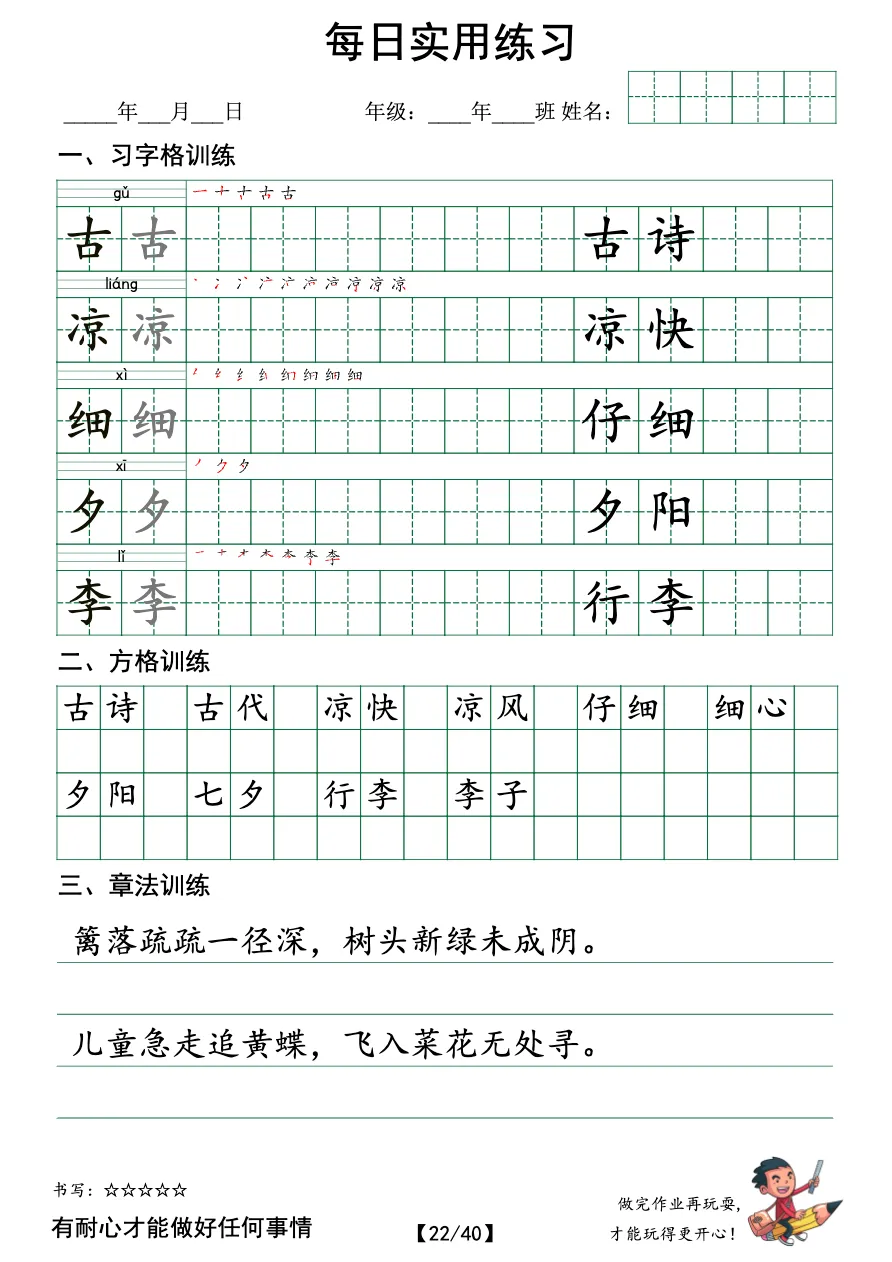 每日实用练习
_____年___月___日 年级：____年____班 姓名：
一、习字格训练
gǔ
古 古 古 诗
liáng
凉 凉 凉 快
xì
细 细 仔 细
xī
夕 夕 夕 阳
lǐ
李 李 行 李
二、方格训练
古 诗 古 代 凉 快 凉 风 仔 细 细 心
夕 阳 七 夕 行 李 李 子
三、章法训练
篱落疏疏一径深，树头新绿未成阴。
儿童急走追黄蝶，飞入菜花无处寻。
书写：☆☆☆☆☆
有耐心才能做好任何事情
【22/40】
做完作业再玩耍，
才能玩得更开心！